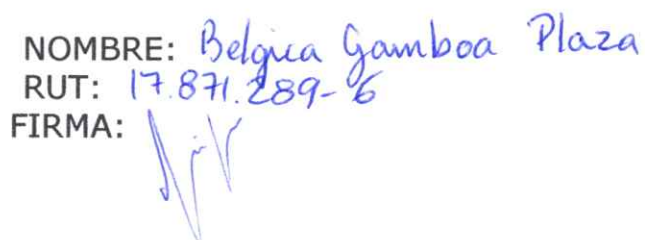 NOMBRE: Belgica Gamboa Plaza
RUT: 17.871.289-6
FIRMA: